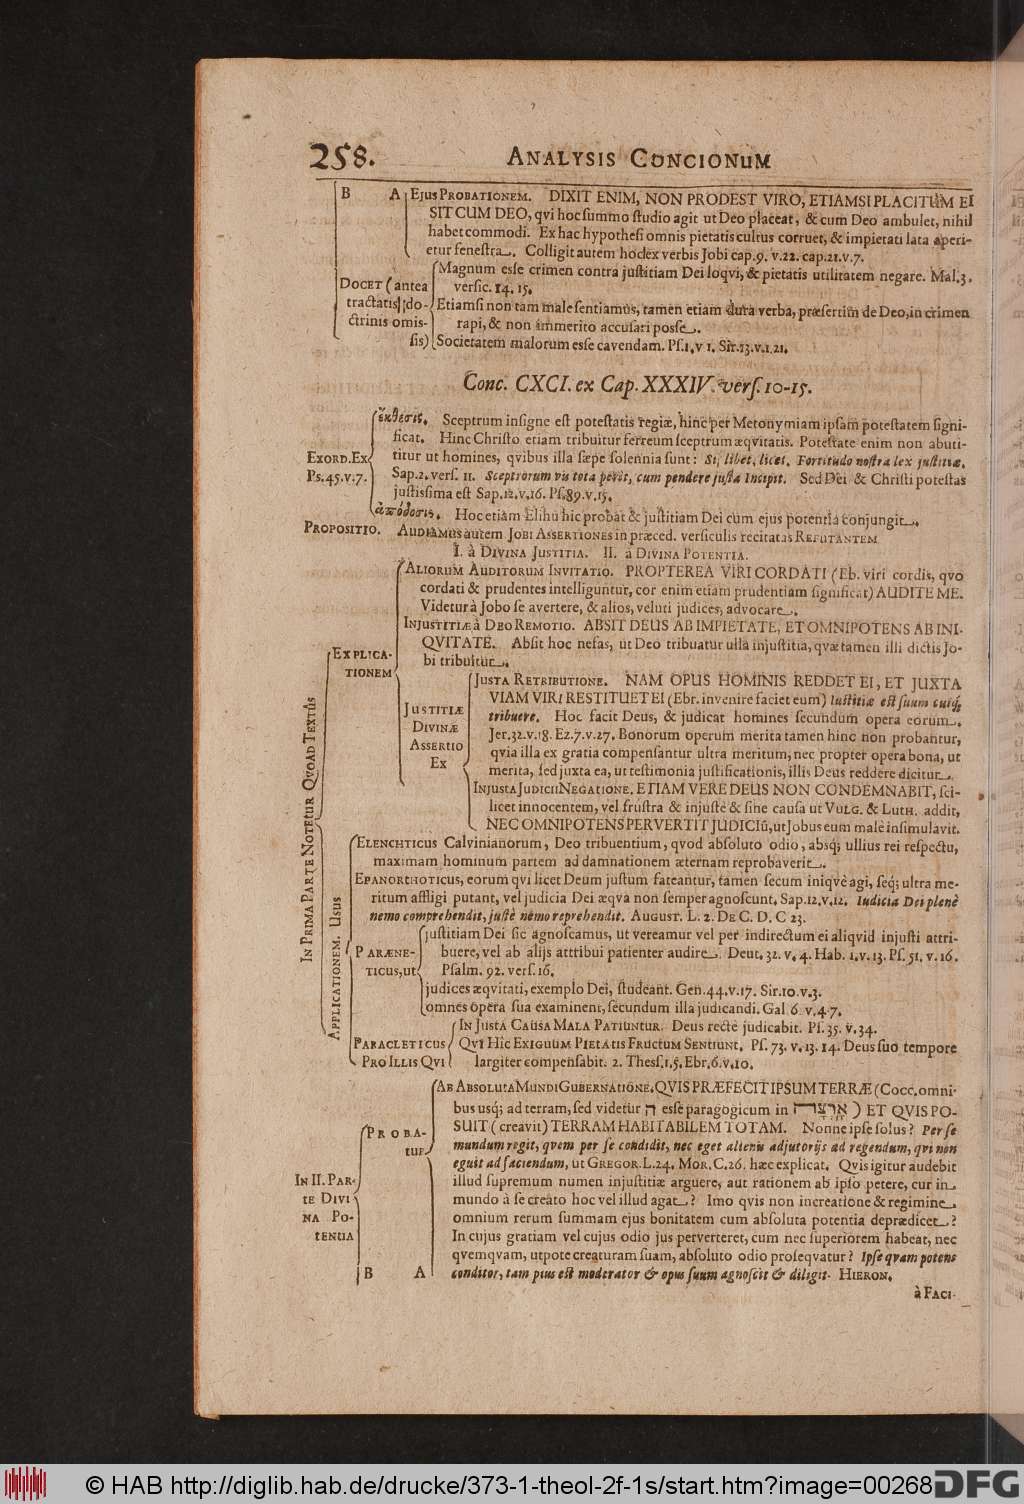 258. ANALYSIS CONCIONUM
B A Ejus PROBATIONEM. DIXIT ENIM, NON PRODEST VIRO, ETIAMSI PLACITUM EI
SIT CUM DEO, qvi hoc ſummo ſtudio agit ut Deo placeat, & cum Deo ambulet, nihil
habet commodi. Ex hac hypotheſi omnis pietatis cultus corruet, & impietati lata aperi-
etur feneſtra. Colligit autem hoc lex verbis Jobi cap. 9. v. 22. cap. 21. v. 7.
DOCET (antea tractatis do-ctrinis omis-ſis)
Magnum eſſe crimen contra juſtitiam Dei loqvi, & pietatis utilitatem negare. Mal. 3.
verſic. 14. 15.
Etiamſi non tam male ſentiamus, tamen etiam dura verba, præſertim de Deo, in crimen
rapi, & non immerito accuſari poſſe.
Societatem malorum eſſe cavendam. Pſ. 1. v 1. Sir. 13. v. 1. 21.
Conc. CXCI. ex Cap. XXXIV. verſ. 10-15.
EXORD. Ex Ps. 45. v. 7.
ἔκθεσις. Sceptrum inſigne eſt poteſtatis regiæ, hinc per Metonymiam ipſam poteſtatem ſigni-
ficat. Hinc Chriſto etiam tribuitur ferreum ſceptrum æqvitatis. Poteſtate enim non abuti-
titur ut homines, qvibus illa ſæpe ſolennia ſunt: Si, libet, licet. Fortitudo noſtra lex juſtitiæ.
Sap. 2. verſ. 11. Sceptrorum vis tota perit, cum pendere juſta Incipit. Sed Dei & Chriſti poteſtas
juſtiſſima eſt Sap. 12. v. 16. Pſ. 89. v. 15.
ἀπόδοσις. Hoc etiam Elihu hic probat & juſtitiam Dei cum ejus potentia conjungit.
PROPOSITIO. AUDIAMUS autem JOBI ASSERTIONES in præced. verſiculis recitatas REFUTANTEM
I. à DIVINA JUSTITIA. II. à DIVINA POTENTIA.
IN PRIMA PARTE NOTETUR QVOAD TEXTUS
EXPLICA-TIONEM
ALIORUM AUDITORUM INVITATIO. PROPTEREA VIRI CORDATI (Eb. viri cordis, qvo
cordati & prudentes intelliguntur, cor enim etiam prudentiam ſignificat) AUDITE ME.
Videtur à Jobo ſe avertere, & alios, veluti judices, advocare.
INJUSTITIÆ à DEO REMOTIO. ABSIT DEUS AB IMPIETATE, ET OMNIPOTENS AB INI-
QVITATE. Abſit hoc nefas, ut Deo tribuatur ulla injuſtitia, qvæ tamen illi dictis Jo-
bi tribuitur.
JUSTITIÆ DIVINÆ ASSERTIO Ex
JUSTA RETRIBUTIONE. NAM OPUS HOMINIS REDDET EI, ET JUXTA
VIAM VIRI RESTITUET EI (Ebr. invenire faciet eum) Iuſtitiæ eſt ſuum cuiq;
tribuere. Hoc facit Deus, & judicat homines ſecundum opera eorum.
Jer. 32. v. 18. Ez. 7. v. 27. Bonorum operum merita tamen hinc non probantur,
qvia illa ex gratia compenſantur ultra meritum, nec propter opera bona, ut
merita, ſed juxta ea, ut teſtimonia juſtificationis, illis Deus reddere dicitur.
INJUSTA JUDICII NEGATIONE. ETIAM VERE DEUS NON CONDEMNABIT, ſci-
licet innocentem, vel fruſtra & injuſtè & ſine cauſa ut VULG. & LUTH. addit,
NEC OMNIPOTENS PERVERTIT JUDICIū, ut Jobus eum malè inſimulavit.
APPLICATIONEM. USUS
ELENCHTICUS Calvinianorum, Deo tribuentium, qvod abſoluto odio, absq; ullius rei reſpectu,
maximam hominum partem ad damnationem æternam reprobaverit.
EPANORTHOTICUS, eorum qvi licet Deum juſtum fateantur, tamen ſecum iniqvè agi, ſeq; ultra me-
ritum affligi putant, vel judicia Dei æqva non ſemper agnoſcunt. Sap. 12. v. 12. Iudicia Dei plenè
nemo comprehendit, juſtè nemo reprehendit. AUGUST. L. 2. DE C. D. C 23.
PARÆNE-TICUS, ut
juſtitiam Dei ſic agnoſcamus, ut vereamur vel per indirectum ei aliqvid injuſti attri-
buere, vel ab alijs attribui patienter audire. Deut. 32. v. 4. Hab. 1. v. 13. Pſ. 51. v. 16.
Pſalm. 92. verſ. 16.
judices æqvitati, exemplo Dei, ſtudeant. Gen. 44. v. 17. Sir. 10. v. 3.
omnes opera ſua examinent, ſecundum illa judicandi. Gal. 6. v. 4. 7.
PARACLETICUS PRO ILLIS QVI
IN JUSTA CAUSA MALA PATIUNTUR. Deus rectè judicabit. Pſ. 35. v. 34.
QVI HIC EXIGUUM PIETATIS FRUCTUM SENTIUNT. Pſ. 73. v. 13. 14. Deus ſuo tempore
largiter compenſabit. 2. Theſ. 1, 5. Ebr. 6. v. 10.
IN II. PAR-TE DIVINA PO-TENTIA
PROBA-TUR
AB ABSOLUTA MUNDI GUBERNATIONE. QVIS PRÆFECIT IPSUM TERRÆ (Cocc. omni-
bus usq; ad terram, ſed videtur ה eſſe paragogicum in אַרְצָה) ET QVIS PO-
SUIT (creavit) TERRAM HABITABILEM TOTAM. Nonne ipſe ſolus? Per ſe
mundum regit, qvem per ſe condidit, nec eget alienis adjutorijs ad regendum, qvi non
eguit ad faciendum, ut GREGOR. L. 24. MOR. C. 26. hæc explicat. Qvis igitur audebit
illud ſupremum numen injuſtitiæ arguere, aut rationem ab ipſo petere, cur in
mundo à ſe creato hoc vel illud agat? Imo qvis non in creatione & regimine
omnium rerum ſummam ejus bonitatem cum abſoluta potentia deprædicet?
In cujus gratiam vel cujus odio jus perverteret, cum nec ſuperiorem habeat, nec
qvemqvam, utpote creaturam ſuam, abſoluto odio proſeqvatur? Ipſe qvam potens
B A conditor, tam pius eſt moderator & opus ſuum agnoſcit & diligit. HIERON.
à FACI-
© HAB http://diglib.hab.de/drucke/373-1-theol-2f-1s/start.htm?image=00268
DFG